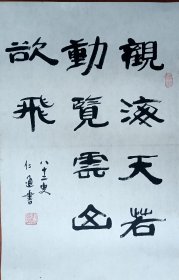 觀海天若
動覽雲山
欲飛
八十二叟
仁通書